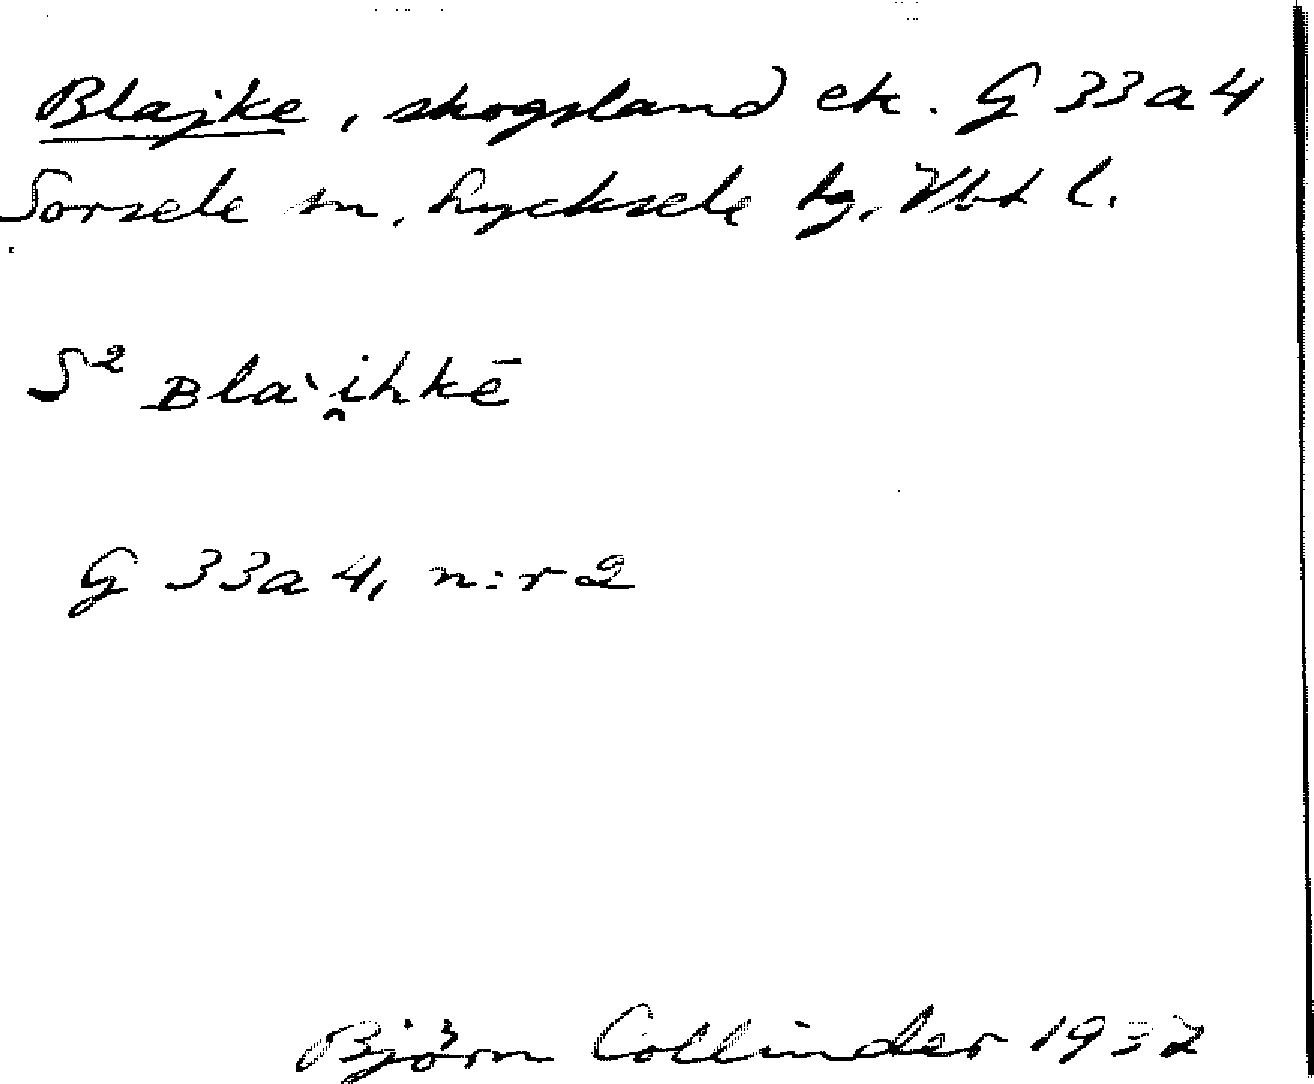 Blajke, skogsland ek. G 33a4
Sorsele sn, Lycksele tg, Vbt l.
S² Bla`i̯hkē
G 33a4, n:r 2
Björn Collinder 1932